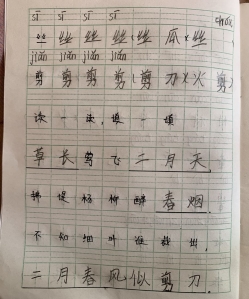 sī sī sī sī
丝 丝 丝 丝 丝 瓜 丝
jiǎn jiǎn jiǎn jiǎn
剪 剪 剪 剪 剪 刀 火 剪
读一读,填一填
草长莺飞二月天,
拂堤杨柳醉春烟。
不知细叶谁裁出,
二月春风似剪刀.